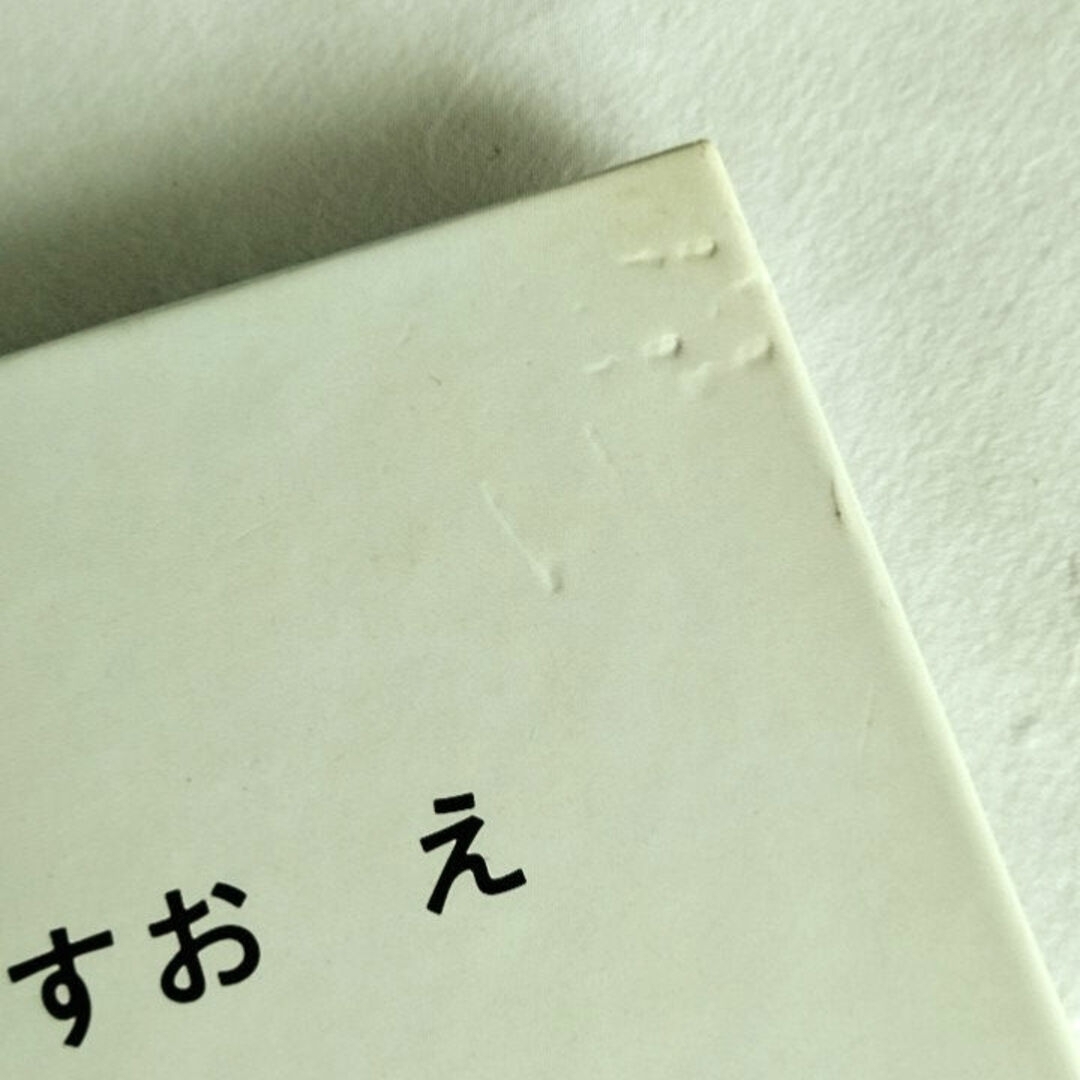 すお え